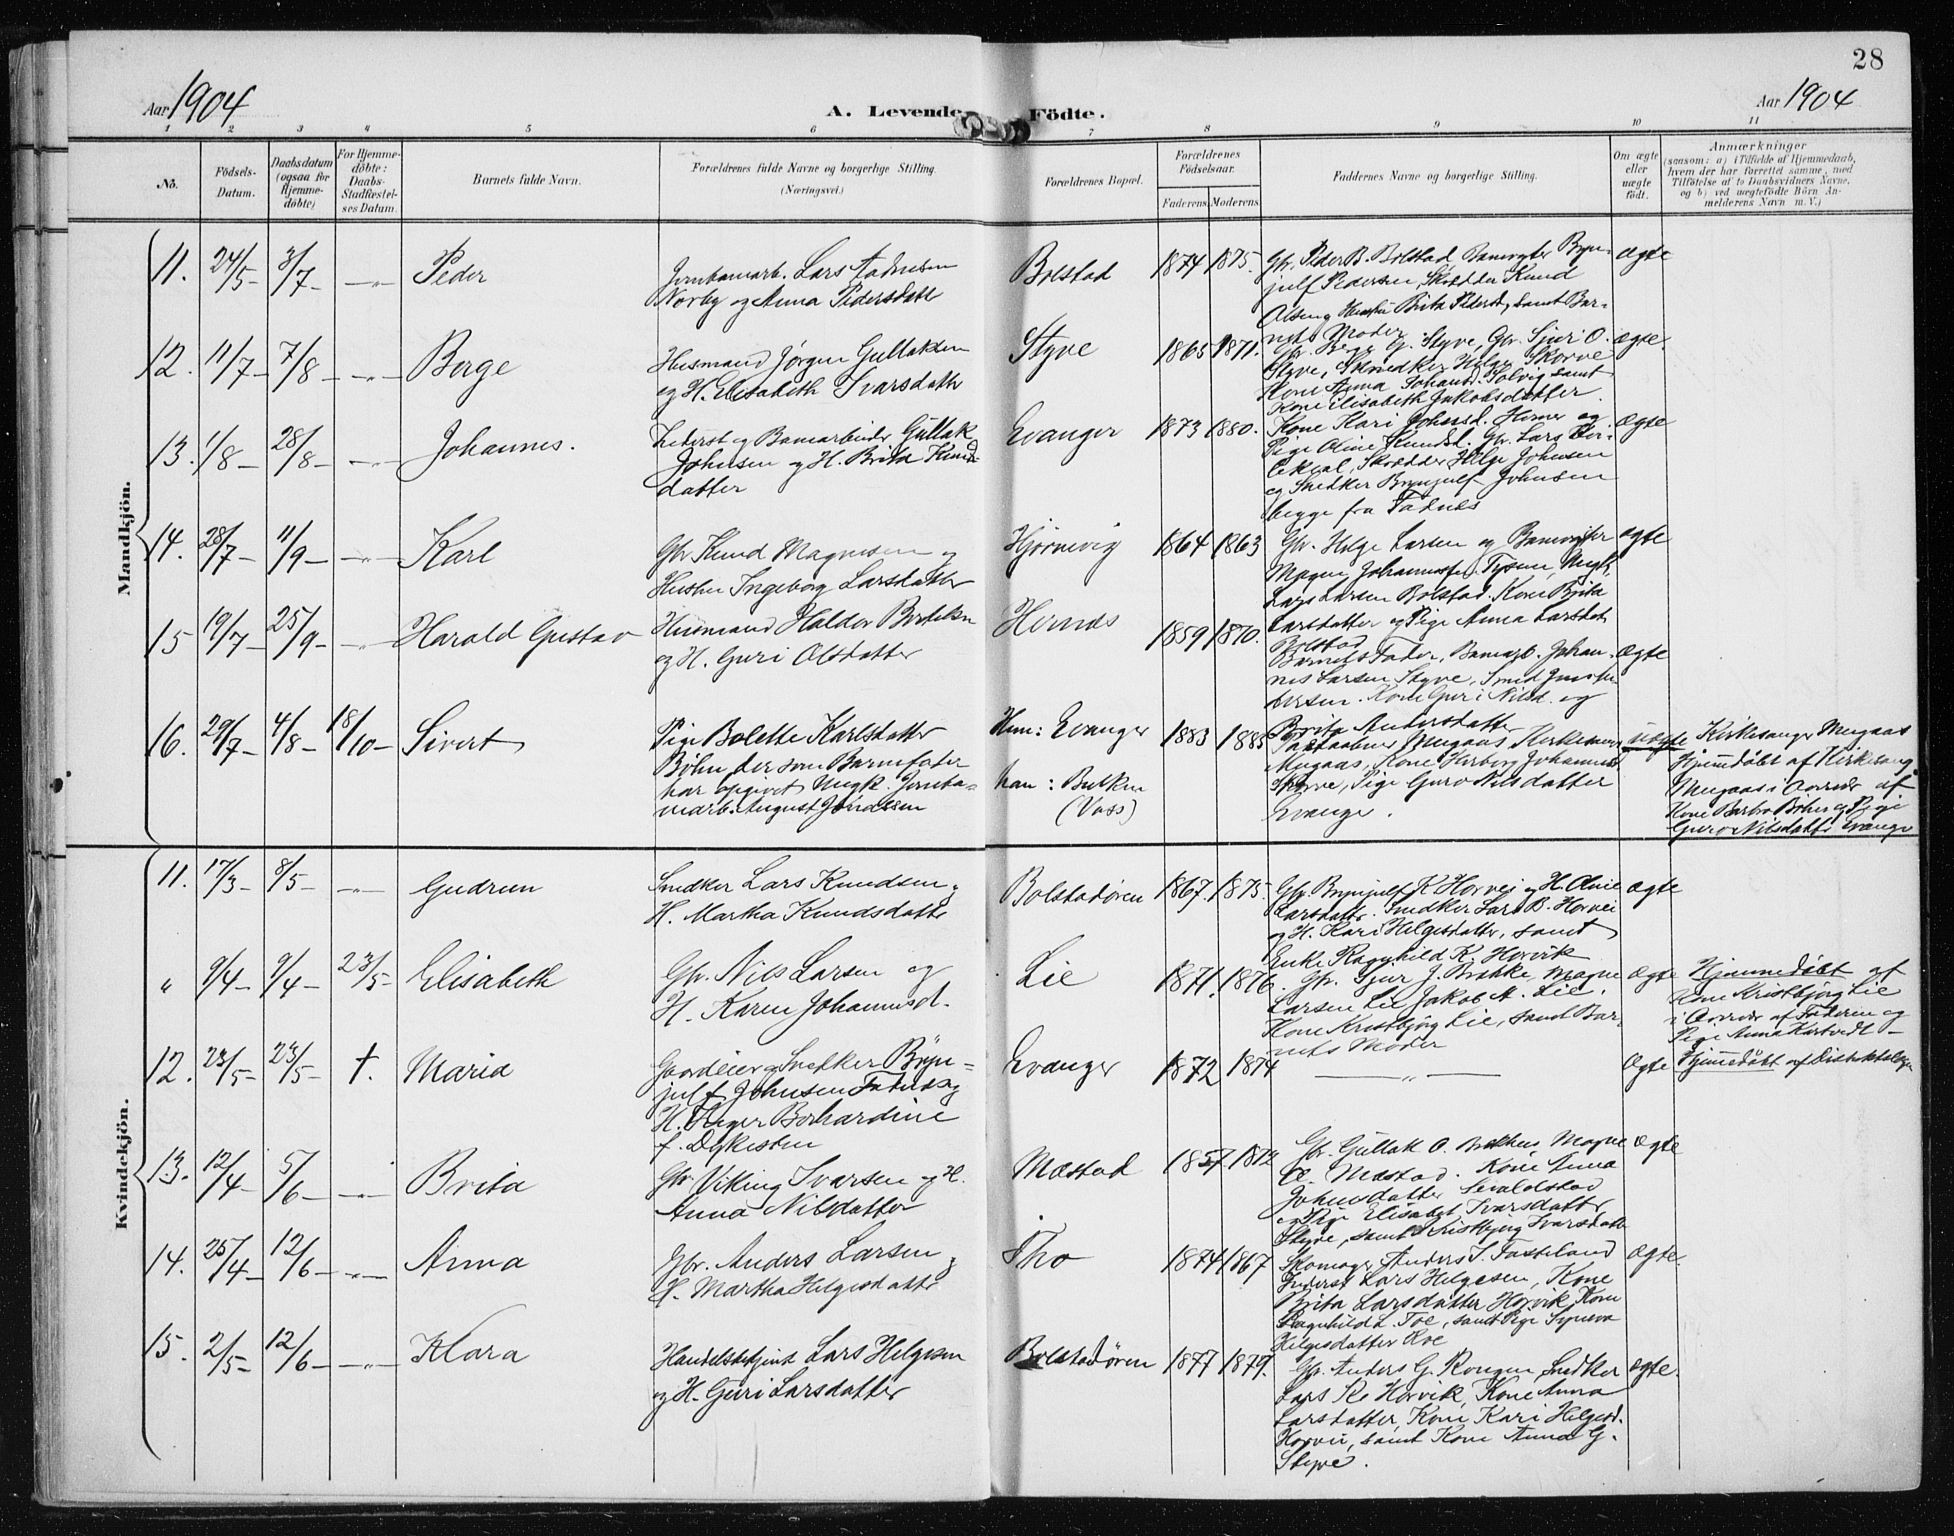 28
Aar 1904
A. Levende Födte.
Aar 1904
1 2 3 4 5 6 7 8 9 10 11
No.
Födsels-
Datum.
Daabsdatum
(ogsaa for
Hjemme-
döbte)
For Hjemme-
döbte:
Daabs-
Stadfæstel-
ses Datum.
Barnets fulde Navn.
Forældrenes fulde Navne og borgerlige Stilling.
(Næringsvei.)
Forældrenes Bopæl.
Forældrenes
Födselsaar.
Faderens Moderens
Faddernes Navne og borgerlige Stilling.
Om ægte
eller
uægte
födt.
Anmærkninger
(saasom: a) i Tilfælde af Hjemmedaab,
hvem der har forrettet samme, med
Tilföielse af to Daabsvidners Navne,
og b) ved uægtefödte Börn An-
melderens Navn m. V.)
Mandkjön.
11. 24/5 3/7 Peder
Lars
Norby og Anna Pedersdatt
Bolstad 1874 1875.
Gbr. Peder B. Bolstad Banevogter Bryn-
julf Pedersen, Skrædder Knud
Olsen og Hustru Brita Pedersd, samt Bar-
nets Moder
ægte
12. 11/7 7/8 Berge
Husmand Jørgen Gullaksen
og H. Elisabeth Ivarsdatter
Styve 1865 1871.
Gbr. Berge G. Styve, Gbr. Sjur O.
Styve, Snedker Helge Skorve
Kone Anna Johansd. Solvig samt
Kone Elisabeth Jakobsdatter.
ægte.
13. 1/8 28/8 Johannes.
Inderst og Banearbeider Gullak
Johnsen og H. Brita Knuds
datter
Evanger 1873 1880.
Kone Kari Johnsd. Hernes og
Pige Oline Knudsd. Gbr. Lars
Skrædder Helge Johnsen
og Snedker Brynjulf Johnsen
begge fra Fadnes
ægte
14. 28/7 11/9 Karl
Gbr Knud Magnesen og
Hustru Ingeborg Larsdatter
Hjørnevig 1864 1863
Gbr. Helge Larsen og Banevogter
Magne Johannesen Tysen, Ungk.
Lars Larsen Bolstad. Kone Brita
Larsdatter og Pige Anna Larsdat
Bolstad
ægte
15 19/7 25/9 Harald Gustav
Husmand Haldor Bertelsn
og H. Guri Olsdatter
Hernæs 1859 1870.
Barnets Fader, Banearb. Johan-
nes Larsen Styve, Smed
Kone Guri Nilsd. og
Brita Andersdatter
ægte
16. 29/7 4/8 18/10 Sivert
Pige Bolette Karlsdatter
Bøhn, der som Barnefater
har opgivet Ungk. Jernba-
nearb. August Jonassen
Hun: Evanger
han: Bulken
(Voss)
1883 1885
Mugaas
Mugaas, Kone Herborg Johannesd
Skorve, Pige Guro Nilsdatter
Evanger.
uægte
Kirkesanger Mugaas
Hjemmedøbt af Kirkesang
Mugaas i Overvær af
Kone Barbro Bøhn og Pige
Guro Nilsdatt. Evanger
Kvindekjön.
11. 17/3 8/5 Gudrun
Snedker Lars Knudsen og
H. Martha Knudsdatter
Bolstadøren 1867. 1875.
Gbr. Brynjulf K Horvei og H. Oline
Larsdatter. Snedker Lars B. Horvei
og H. Kari Helgesdatter, samt
Enke Ragnhild K. Horvik
ægte
" 9/4 9/4 23/5 Elisabeth
Gbr. Nils Larsen og
H. Karen Johannesd.
Lie 1871. 1876.
Gbr. Sjur J. Brække, Magne
Larsen Lie Jakob A. Lie.
Kone Kristbjørg Lie, samt Bar-
nets Moder
ægte
Hjemmedøbt af
Kone Kristbjørg Lie
i Overvær af Faderen og
Pige Anna
12. 23/5 23/5 †. Maria
Gaardeier og Snedker Bryn-
julf Johnsen Fadnes og
H. Inger Berhardine
f. Dykesteen
Evanger 1872 1874
ægte
Hjemmedøbt af Distriktslægen
13. 12/4 5/6 Brita
Gbr Viking Ivarsen og H.
Anna Nilsdatter
Mæstad 1857 1872
Gbr. Gullak O. Bækhus Magne
O. Mæstad. Kone Anna
Johnsdatter Sevaldstad
og Pige Elisabet Ivarsdatter
Styve, samt Kristbjørg Ivarsdatt
ægte
14. 25/4 12/6 Anna
Gbr. Anders Larsen og
H. Martha Helgesdatter
Tho 1874 1867
Skomager Anders I. Fasteland
Inderst Lars Helgesen, Kone
Brita Larsdatter Horvik, Kone
Ragnhild L. Toe, samt Pige Synneva
Helgesdatter Roe
ægte.
15. 2/5 12/6 Klara
Handelsbetjent Lars Helgesen
og H. Guri Larsdatter
Bolstadøren 1877 1879.
Gbr. Anders G. Rongen, Snedker
Lars K. Horvik, Kone Anna
Larsdatter, Kone Kari Helgesd.
Horvei, samt Kone Anna G.
Styve.
ægte.